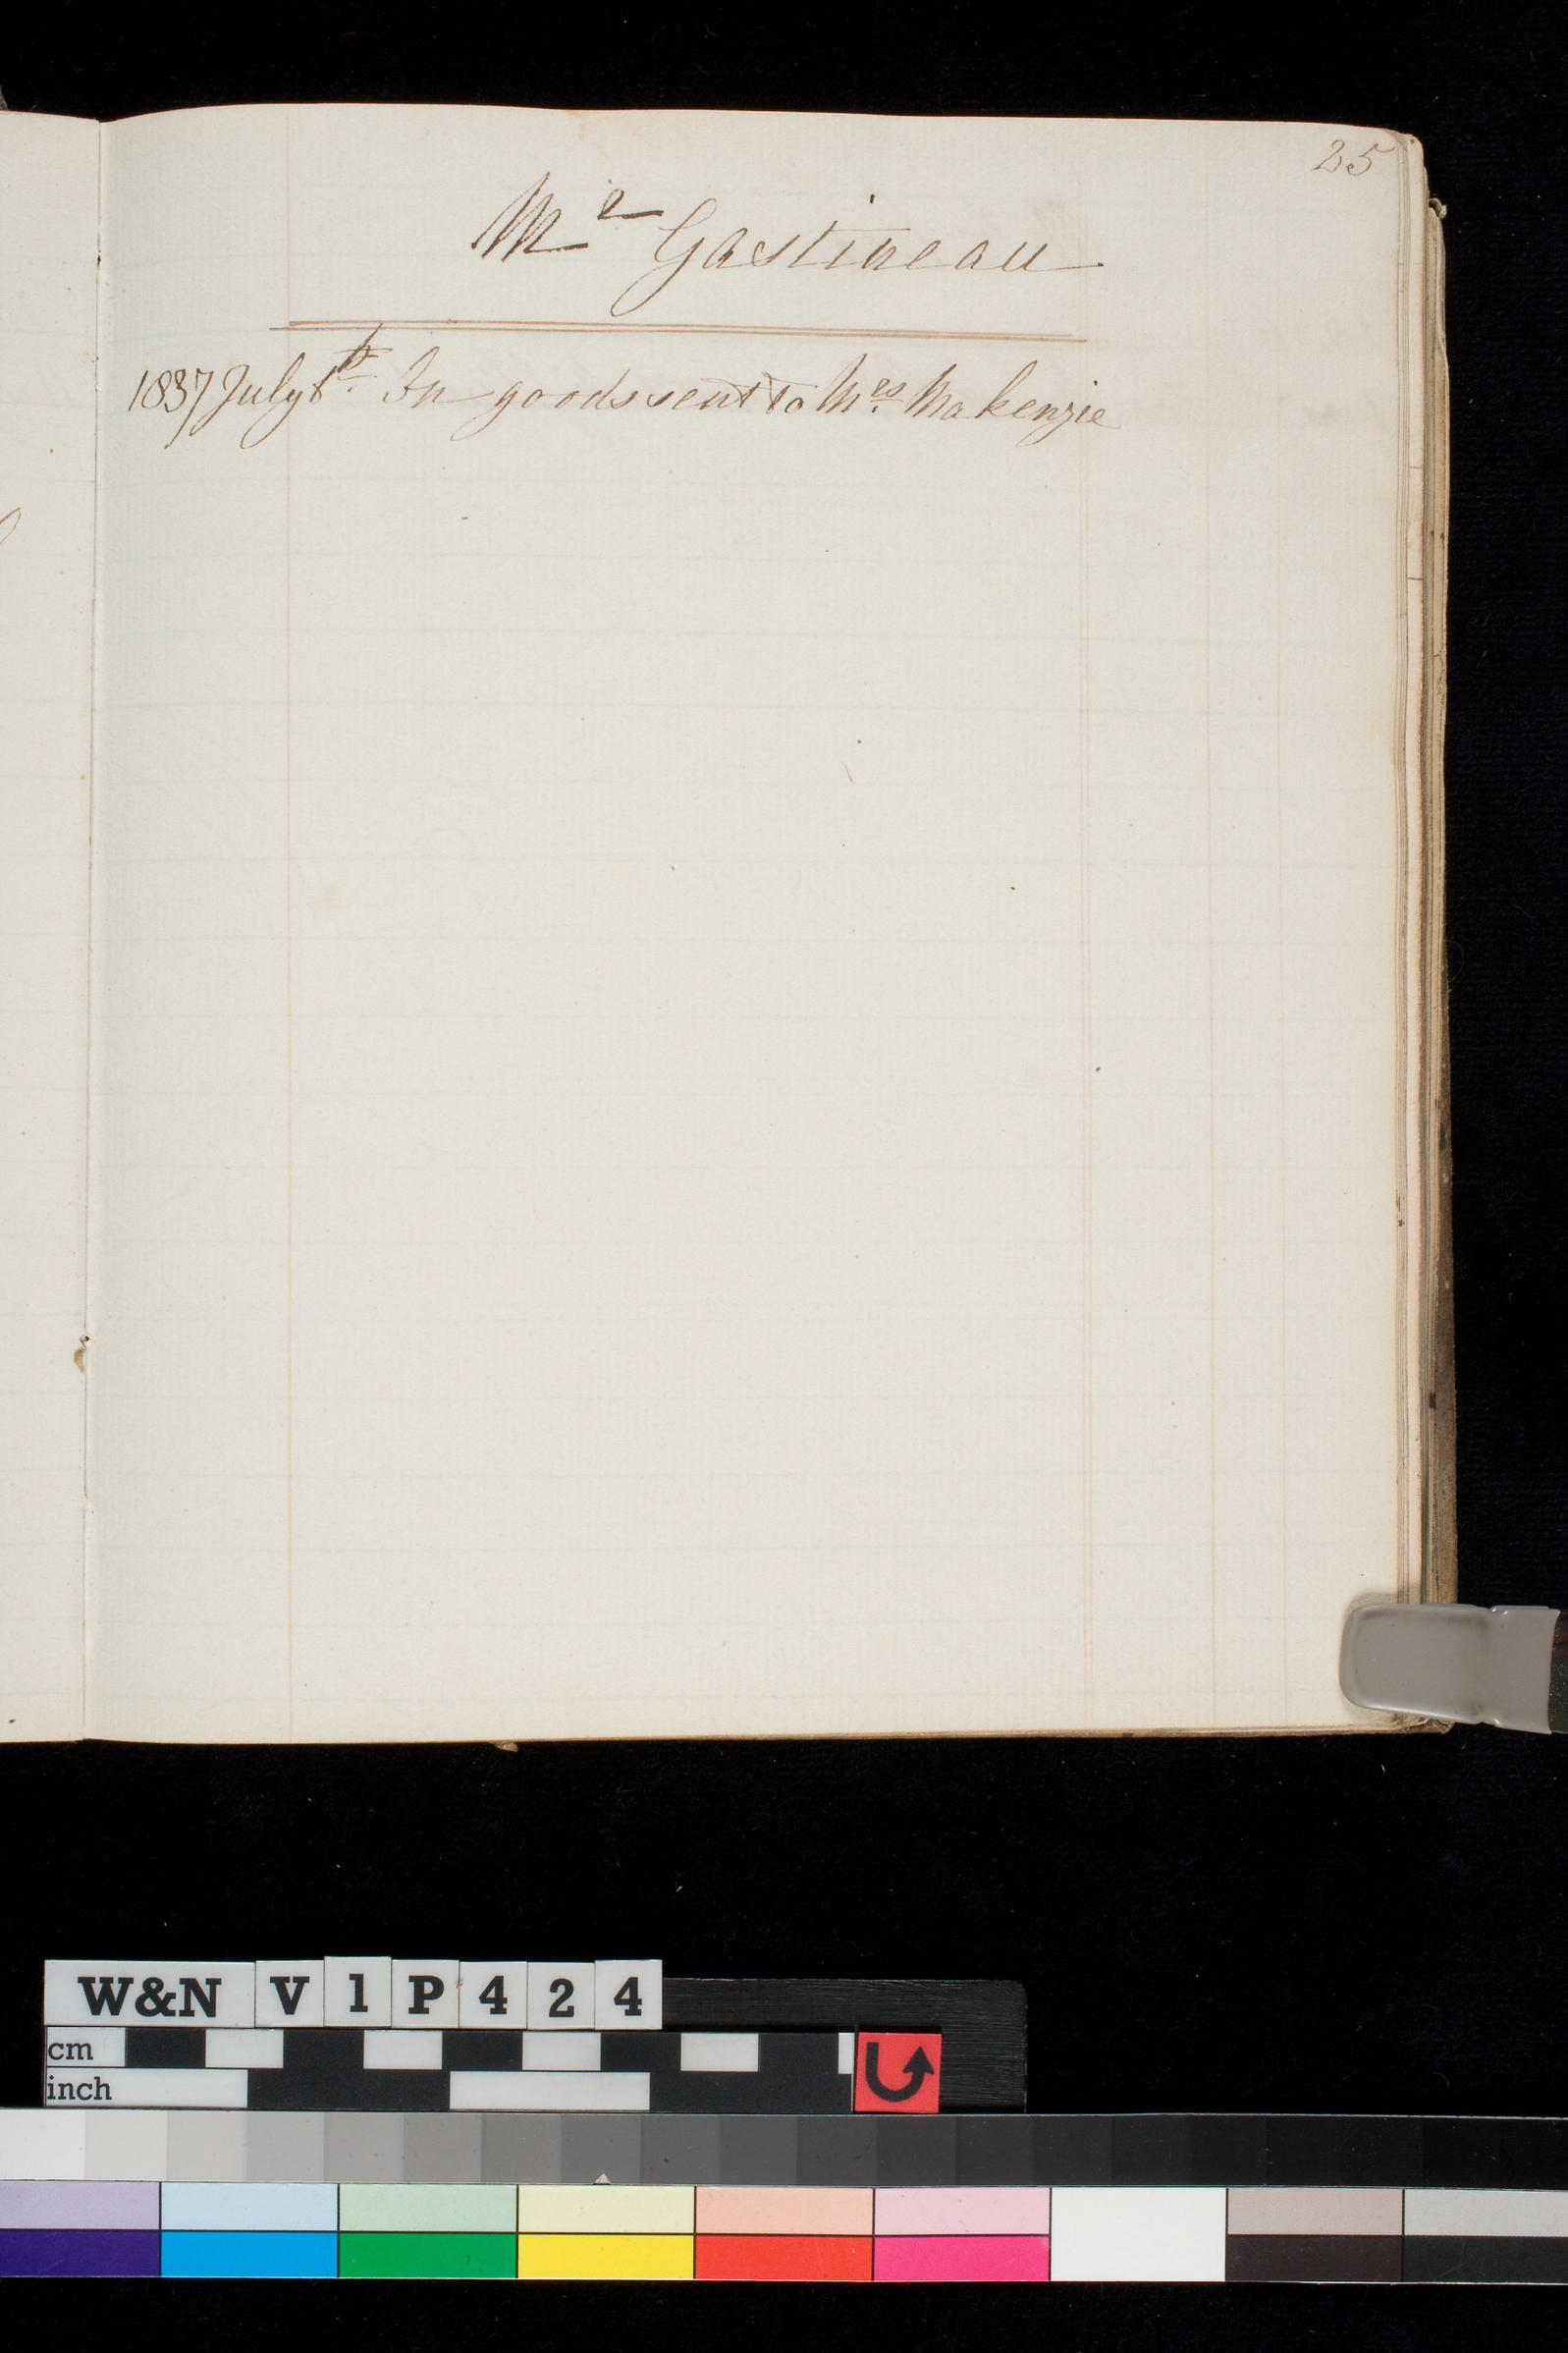 25
Mr Gastineau
1837 July 6th In goods sent to Mrs Makenzie
W&N V 1 P 4 2 4
cm
inch